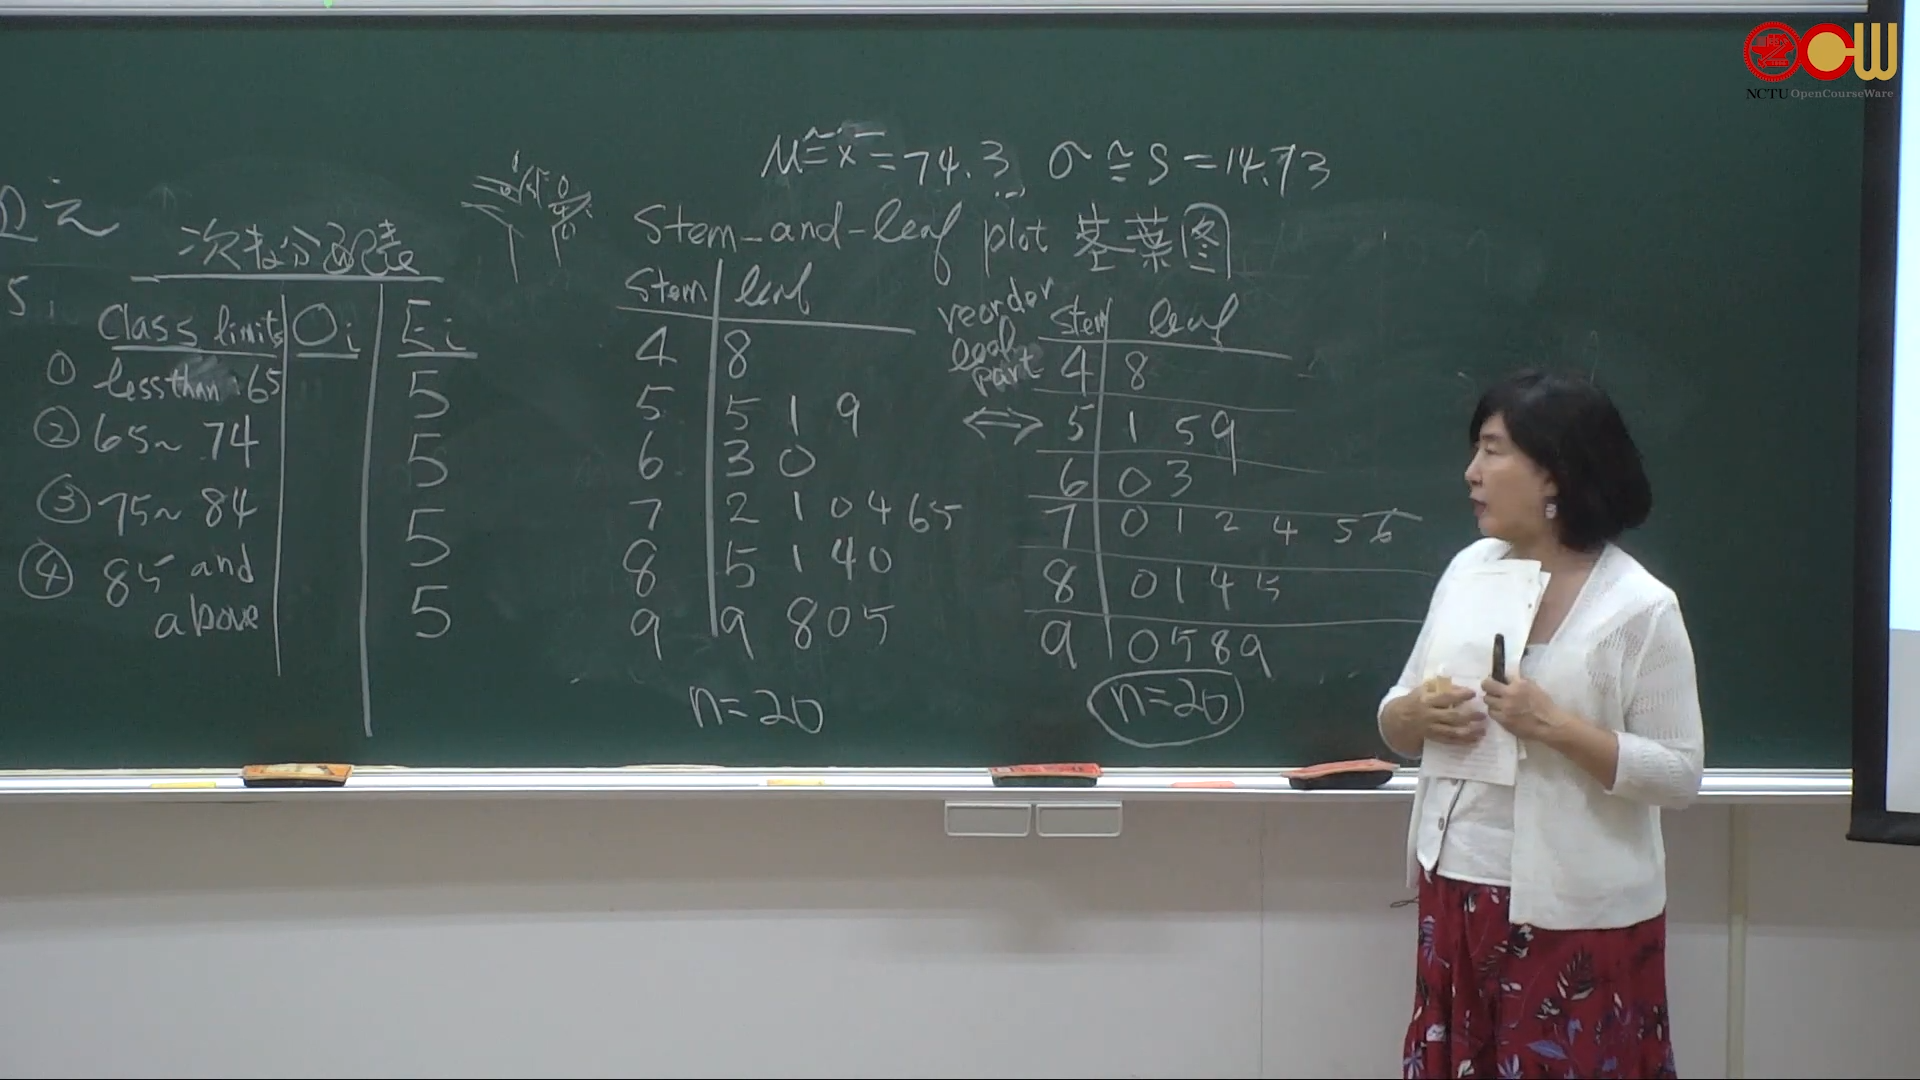 NCTU OpenCourseWare
μ ≅ x̄ = 74.3 σ ≅ s = 14.73
Stem-and-leaf plot 莖葉图
次數分配表
Class limits Oi Ei
① less than 65 5
② 65~74 5
③ 75~84 5
④ 85 and above 5
Stem leaf
4 8
5 5 1 9
6 3 0
7 2 1 0 4 6 5
8 5 1 4 0
9 9 8 0 5
n=20
reorder
leaf
part
⇔
Stem leaf
4 8
5 1 5 9
6 0 3
7 0 1 2 4 5 6
8 0 1 4 5
9 0 5 8 9
n=20